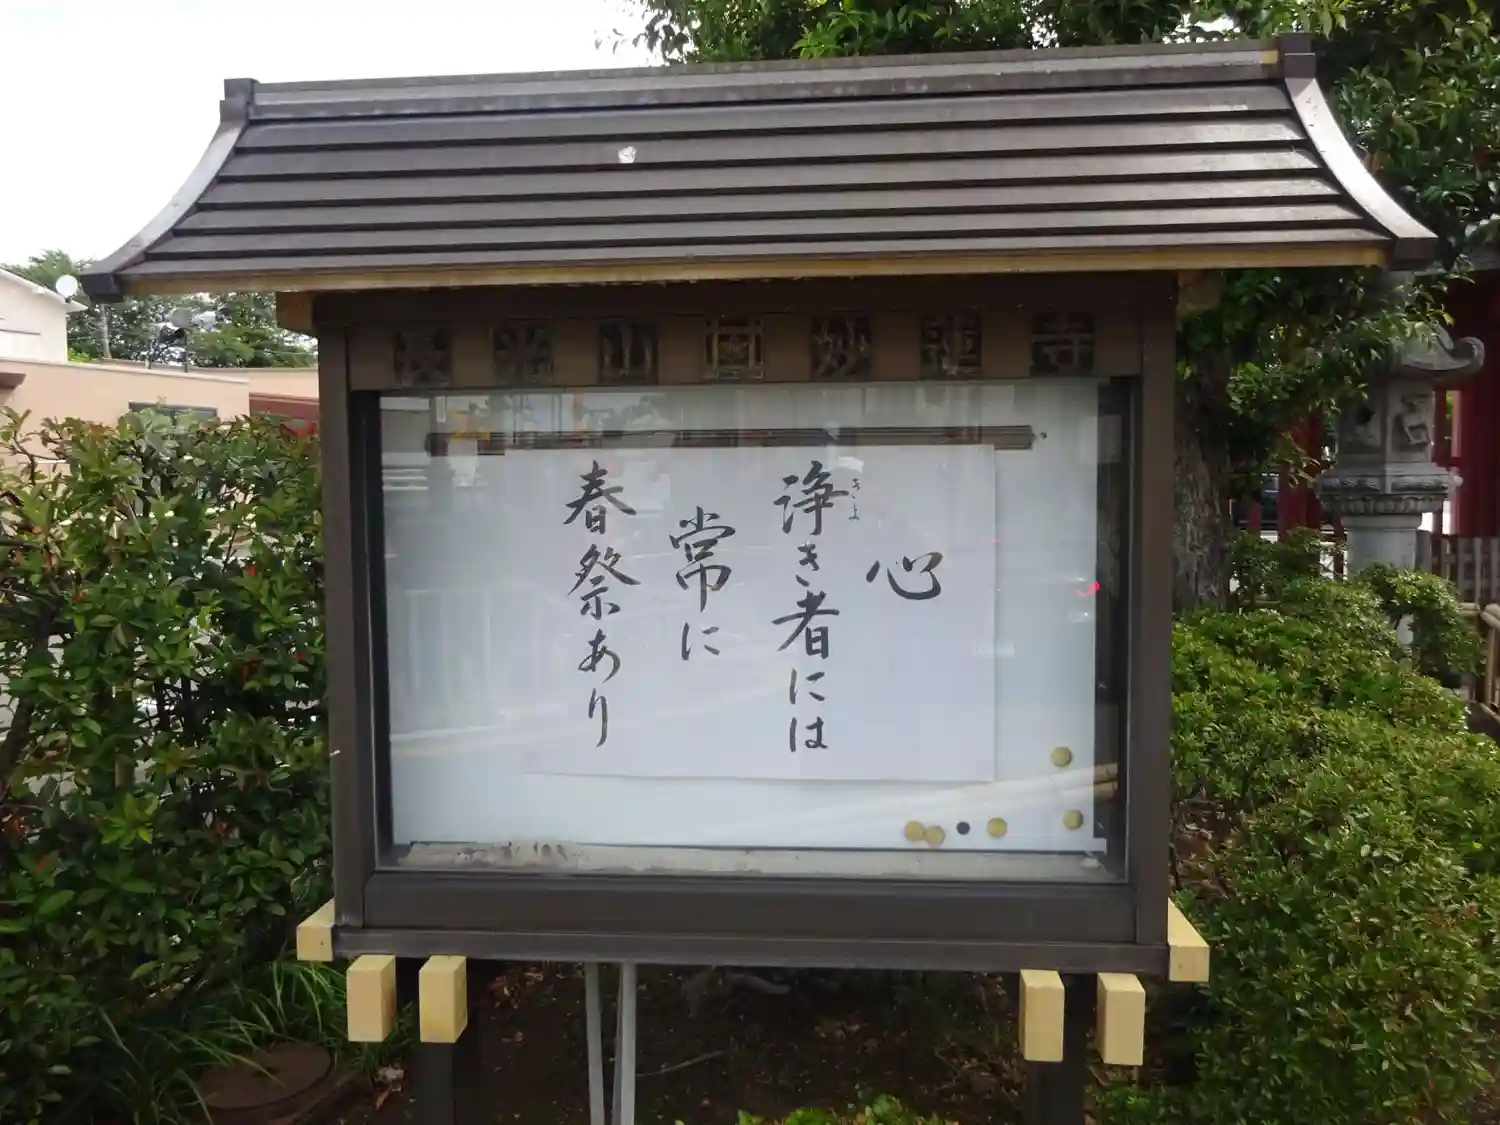 長光山妙蓮寺
心
浄き者には
きよ
常に
春祭あり